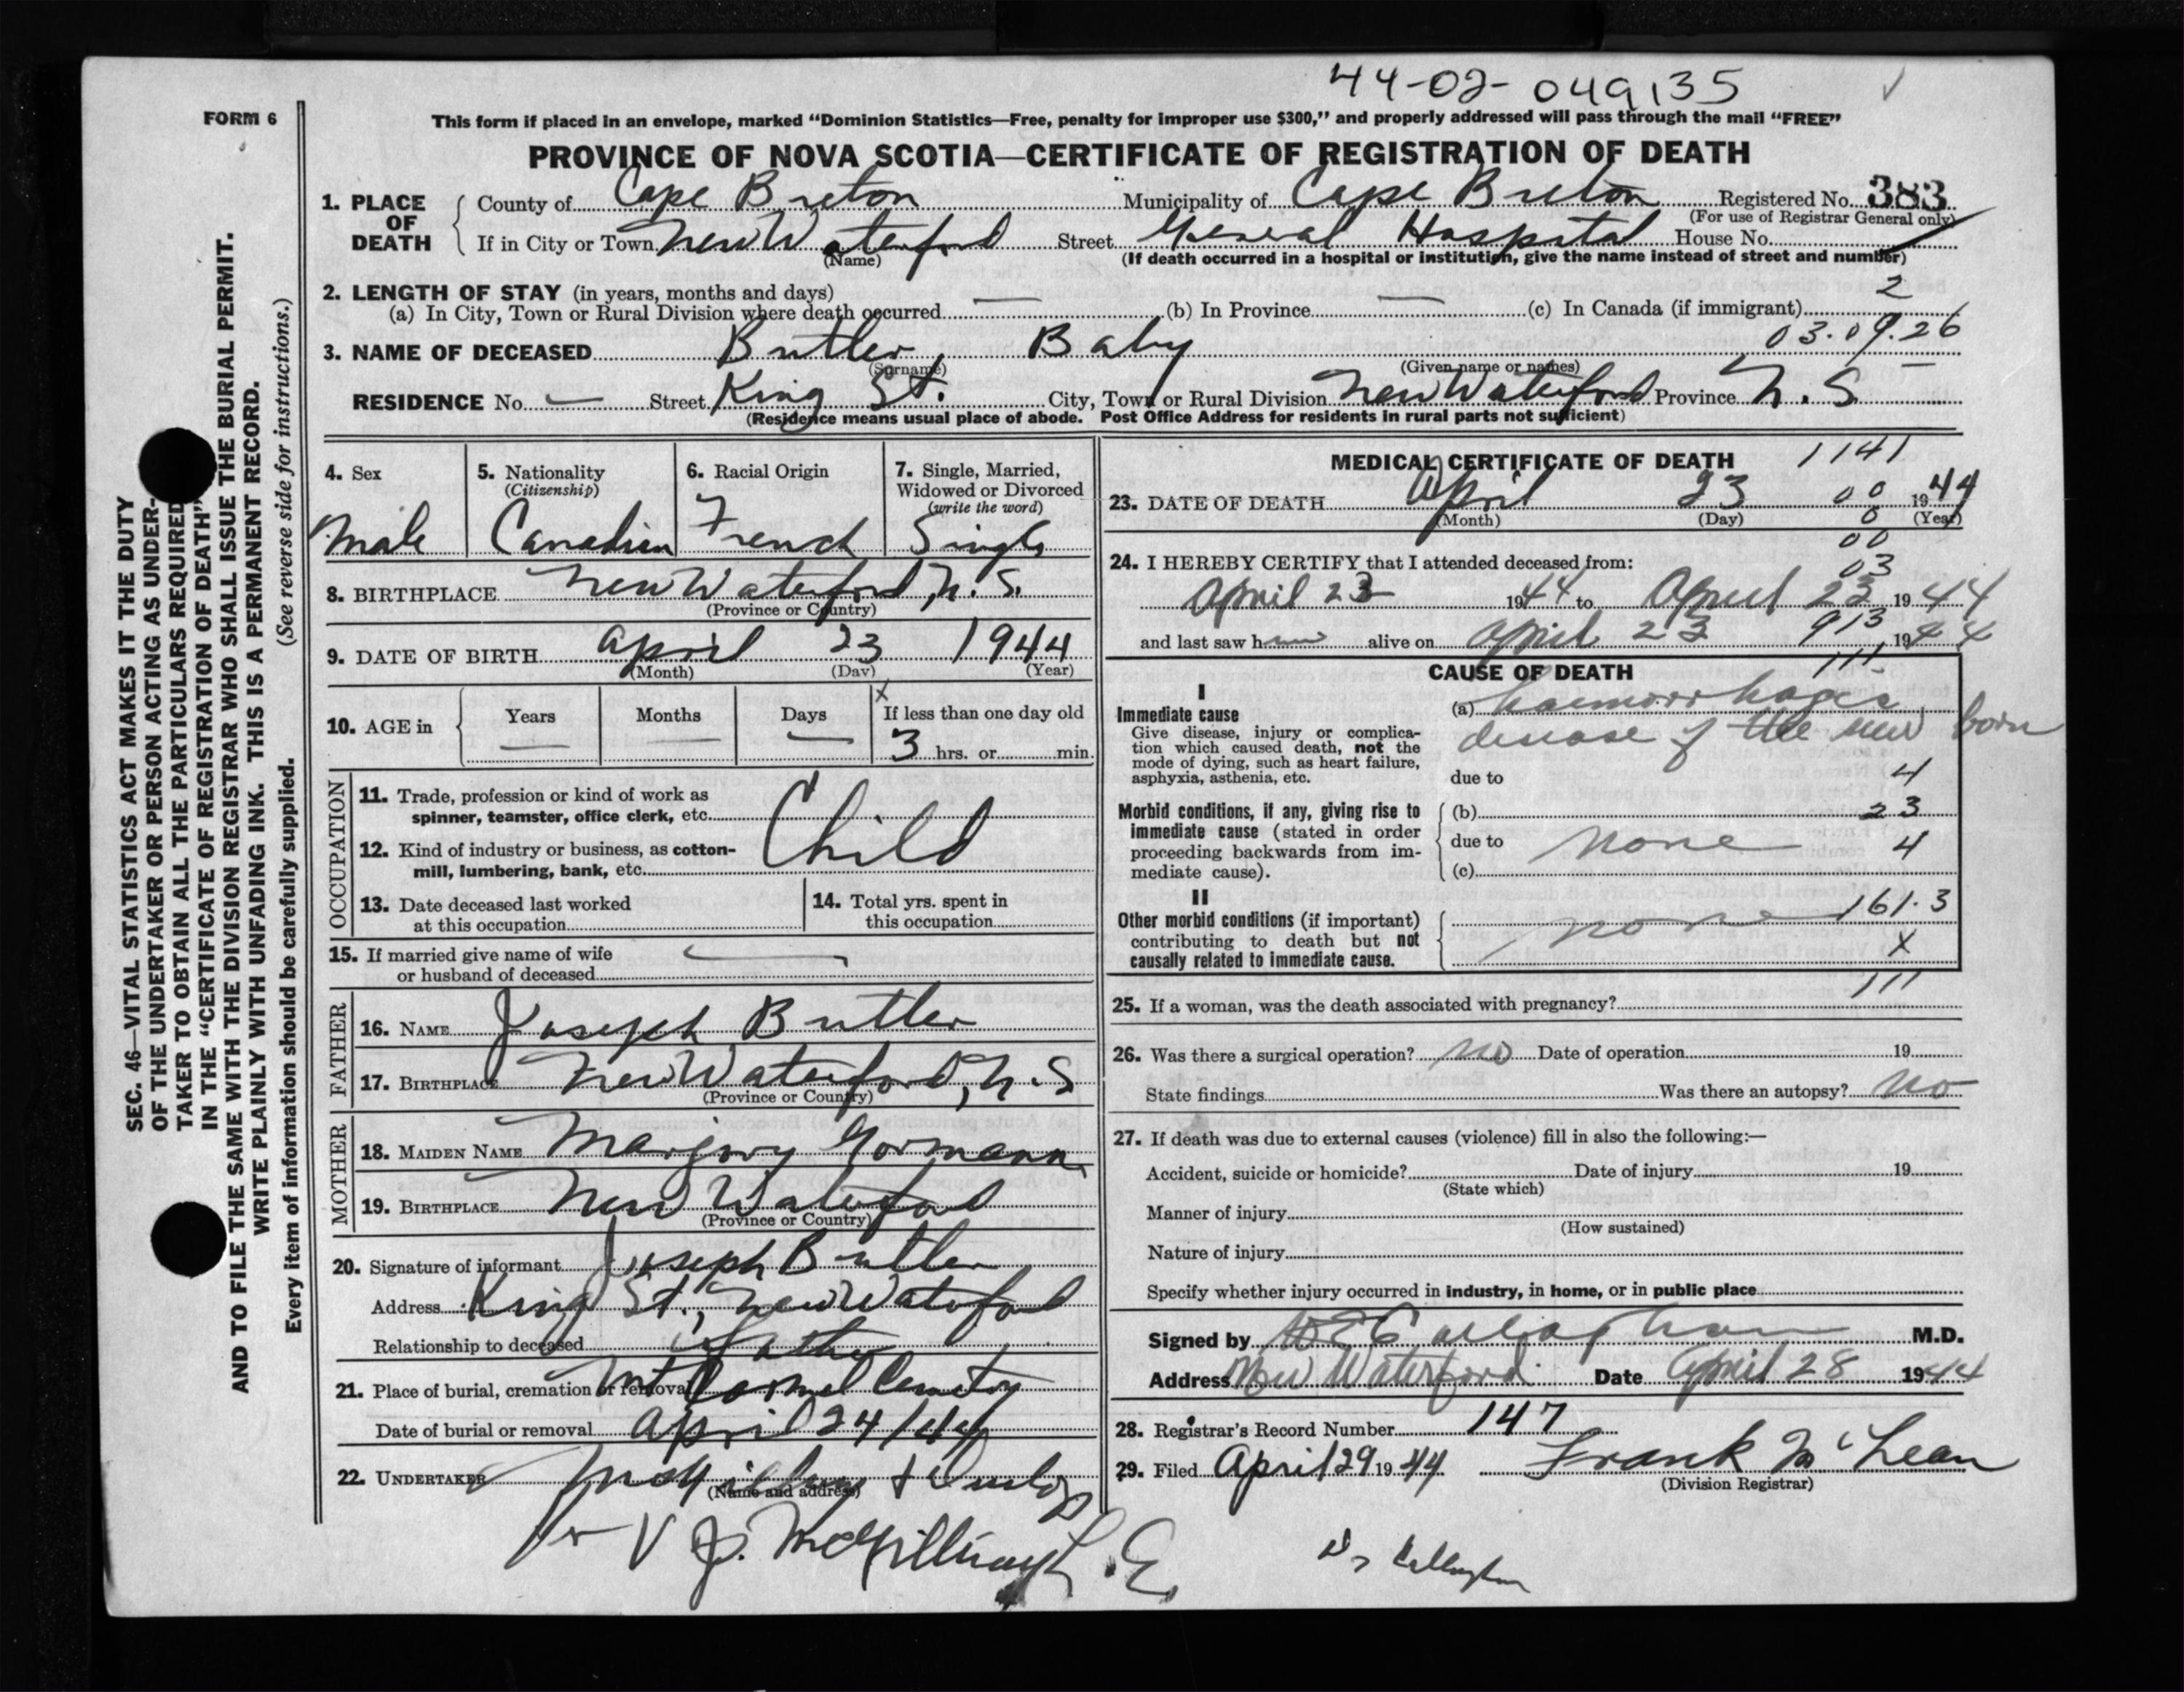 44-02-049135
FORM 6
This form if placed in an envelope, marked "Dominion Statistics—Free, penalty for improper use $300," and properly addressed will pass through the mail "FREE"
PROVINCE OF NOVA SCOTIA—CERTIFICATE OF REGISTRATION OF DEATH
1. PLACE OF DEATH
County of Cape Breton Municipality of Cape Breton Registered No. 383
(For use of Registrar General only)
If in City or Town New Waterford Street General Hospital House No.
(Name) (If death occurred in a hospital or institution, give the name instead of street and number)
2. LENGTH OF STAY (in years, months and days) 2
(a) In City, Town or Rural Division where death occurred — (b) In Province — (c) In Canada (if immigrant)
3. NAME OF DECEASED Butler, Baby 03.09.26
(Surname) (Given name or names)
RESIDENCE No. — Street King St. City, Town or Rural Division New Waterford Province N. S
(Residence means usual place of abode. Post Office Address for residents in rural parts not sufficient)
4. Sex
Male
5. Nationality
(Citizenship)
Canadian
6. Racial Origin
French
7. Single, Married,
Widowed or Divorced
(write the word)
Single
8. BIRTHPLACE New Waterford, N. S.
(Province or Country)
9. DATE OF BIRTH April 23 1944
(Month) (Day) (Year)
10. AGE in
Years —
Months —
Days —
X
If less than one day old
3 hrs. or min.
OCCUPATION
11. Trade, profession or kind of work as
spinner, teamster, office clerk, etc.
Child
12. Kind of industry or business, as cotton-
mill, lumbering, bank, etc.
13. Date deceased last worked
at this occupation
14. Total yrs. spent in
this occupation
15. If married give name of wife
or husband of deceased
FATHER
16. NAME Joseph Butler
17. BIRTHPLACE New Waterford, N. S
(Province or Country)
MOTHER
18. MAIDEN NAME Marjory Gormann
19. BIRTHPLACE New Waterford
(Province or Country)
20. Signature of informant Joseph Butler
Address King St., New Waterford
Relationship to deceased Father
21. Place of burial, cremation or removal Mt Carmel Cemetery
Date of burial or removal April 24/44
22. UNDERTAKER McGillivray & Dunlop
(Name and address)
per V J. McGillivray L.E.
MEDICAL CERTIFICATE OF DEATH 1141
23. DATE OF DEATH April 23 00 1944
(Month) (Day) 0 (Year)
00
24. I HEREBY CERTIFY that I attended deceased from: 03
April 23 1944 to April 23 1944
and last saw h alive on April 23 913 1944
CAUSE OF DEATH 111
I
Immediate cause
Give disease, injury or complica-
tion which caused death, not the
mode of dying, such as heart failure,
asphyxia, asthenia, etc.
(a) haemorrhagic
disease of the new born
due to 4
Morbid conditions, if any, giving rise to
immediate cause (stated in order
proceeding backwards from im-
mediate cause).
(b) 23
due to none 4
(c)
II
Other morbid conditions (if important)
contributing to death but not
causally related to immediate cause.
none 161.3
X
25. If a woman, was the death associated with pregnancy? 111
26. Was there a surgical operation? no Date of operation 19
State findings Was there an autopsy? no
27. If death was due to external causes (violence) fill in also the following:—
Accident, suicide or homicide? Date of injury 19
(State which)
Manner of injury
(How sustained)
Nature of injury
Specify whether injury occurred in industry, in home, or in public place
Signed by Callaghan M.D.
Address New Waterford Date April 28 1944
28. Registrar's Record Number 147
29. Filed April 29 1944 Frank McLean
(Division Registrar)
Dr Callaghan
SEC. 46—VITAL STATISTICS ACT MAKES IT THE DUTY
OF THE UNDERTAKER OR PERSON ACTING AS UNDER-
TAKER TO OBTAIN ALL THE PARTICULARS REQUIRED
IN THE "CERTIFICATE OF REGISTRATION OF DEATH"
AND TO FILE THE SAME WITH THE DIVISION REGISTRAR WHO SHALL ISSUE THE BURIAL PERMIT.
WRITE PLAINLY WITH UNFADING INK. THIS IS A PERMANENT RECORD.
Every item of information should be carefully supplied. (See reverse side for instructions.)